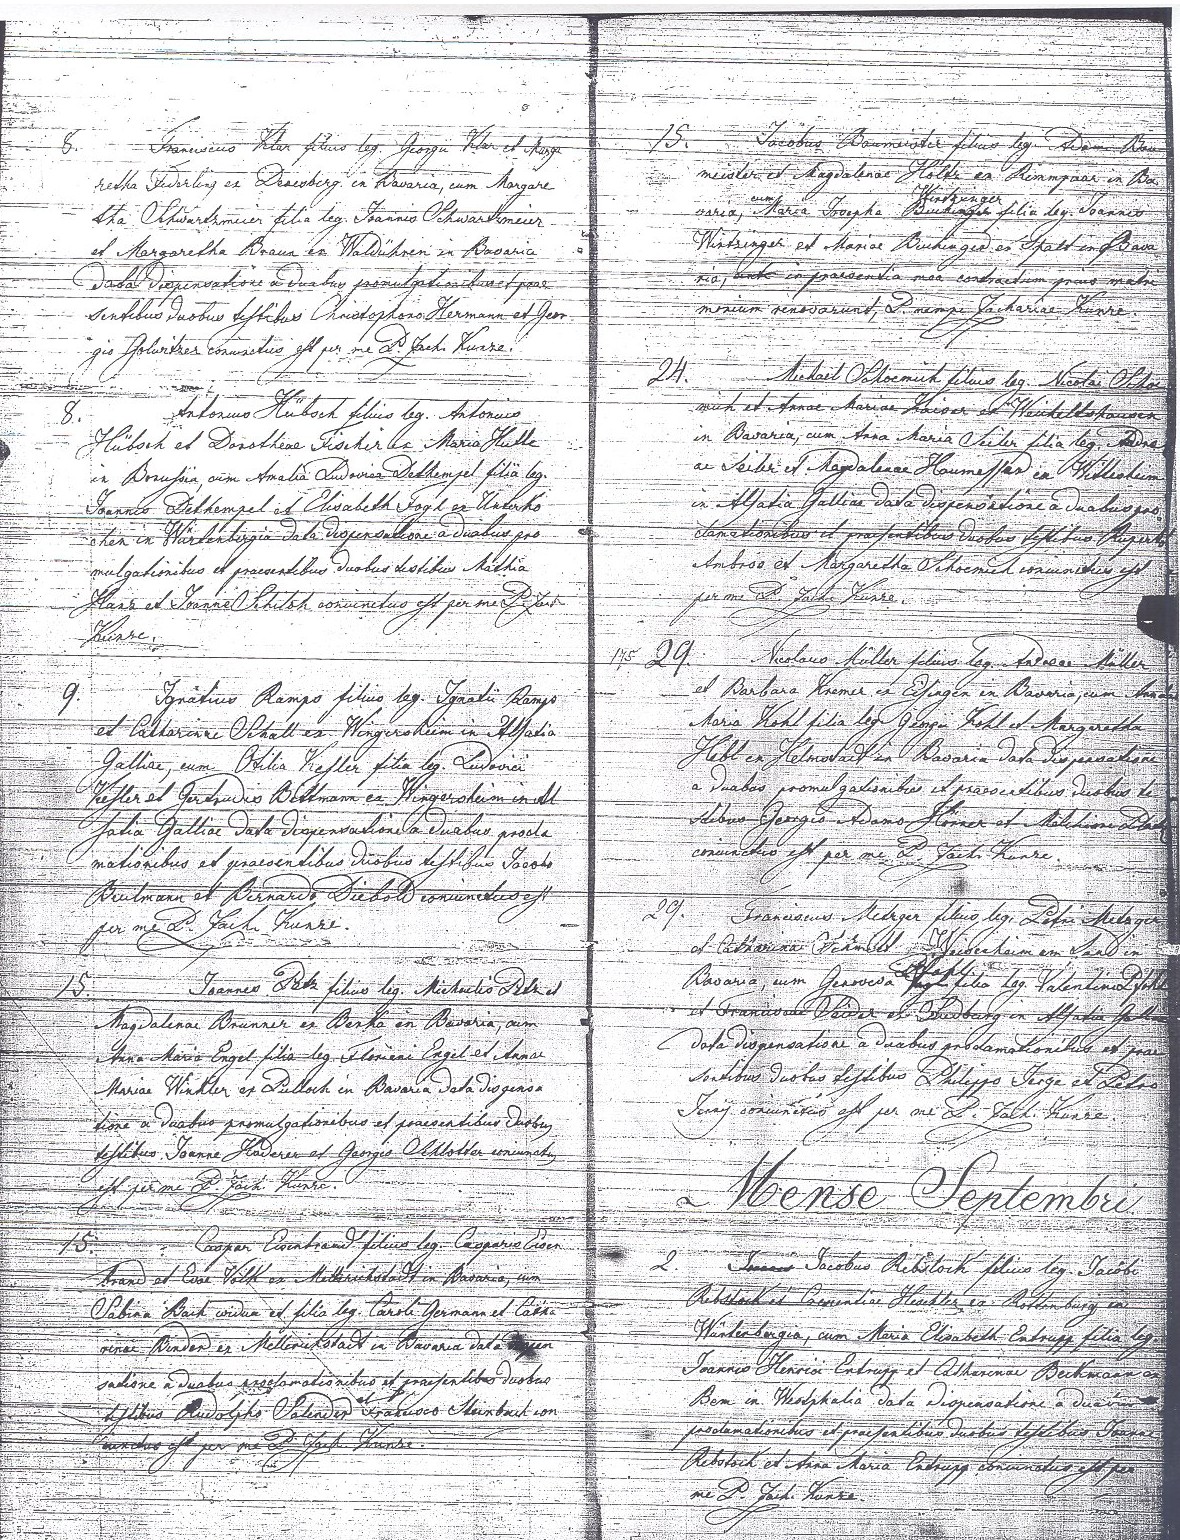 8. Franciscus Klar filius leg. Georgii Klar et Marga
retha Federling ex in Bavaria, cum Margare
tha Schwartzmeier filia leg. Joannis Schwartzmeier
et Margaretha Braun ex Waldühren in Bavaria
data dispensatione a duabus promulgationibus et prae
sentibus duobus testibus Christophoro Hermann et Geor
gio conjunctus est per me P. Zach. Kunze.
8. Antonius Hübsch filius leg. Antonius
Hübsch et Dorotheae Fischer ex Maria Hulle
in Borussia, cum Amalia Ludovica Dethempel filia leg.
Joannis Dethempel et Elisabeth Fogh ex Unterko
chen in Würtenbergia data dispensatione a duabus pro
mulgationibus et praesentibus duobus testibus Mathia
Hanz et Joanne Schiloh conjunctus est per me P. Zach.
Kunze.
9. Ignatius Ramps filius leg. Ignatii Ramps
et Catharinae Schall ex Wingersheim in Alsatia
Galliae, cum Otilia Kesler filia leg. Ludovici
Kesler et Gertrudis Bettmann ex Wingersheim in Al
satia Galliae data dispensatione a duabus procla
mationibus et praesentibus duobus testibus Jacobo
Beulmann et Bernardo Diebold conjunctus est
per me P. Zach. Kunze.
15. Joannes Petz filius leg. Michaelis Petz et
Magdalenae Brunner ex Benha in Bavaria, cum
Anna Maria Engel filia leg. Floriani Engel et Annae
Mariae Winkler ex Pulloch in Bavaria data dispensa
tione a duabus promulgationibus et praesentibus duobus
testibus Joanne Haderer et Georgio Schlotter conjunctus
est per me P. Zach. Kunze.
15. Caspar Eisenbrand filius leg. Casparis Eisen
brand et Evae Volk ex Mellrichstadt in Bavaria, cum
Sabina Bach vidua et filia leg. Caroli Germann et Catha
rinae Binder ex Mellrichstadt in Bavaria data dispen
satione a duabus proclamationibus et praesentibus duobus
testibus Rudolpho Salender et Francisco Steinbach con
iunctus est per me P. Zach. Kunze.
15. Jacobus Baumeister filius leg. Adam Bau
meister et Magdalenae Holtz ex Rimmpaar in Ba
varia, cum Maria Josepha Wintzinger filia leg. Joannis
Wintzinger et Mariae Buchinger ex Spalt in Bava
ria, in praesentia mea contractum prius matri
monium renovarunt, P. nempe Zachariae Kunze.
24. Michael Schoemich filius leg. Nicolai Schoe
mich et Annae Mariae Kaiser ex Weicheltshausen
in Bavaria, cum Anna Maria Seiler filia leg. Andre
ae Seiler et Magdalenae Haumesser ex Witlisheim
in Alsatia Galliae data dispensatione a duabus pro
clamationibus et praesentibus duobus testibus Ruperto
Ambros et Margaretha Schoemich conjunctus est
per me P. Zach. Kunze.
175 29. Nicolaus Müller filius leg. Andreae Müller
et Barbara Kremer ex Eisingen in Bavaria, cum Anna
Maria Kohl filia leg. Georgii Kohl et Margaretha
Hebl ex Helmstadt in Bavaria data dispensatione
a duabus promulgationibus et praesentibus duobus te
stibus Georgio Adamo Hörner et Melchiore
conjunctus est per me P. Zach. Kunze.
29. Franciscus Metzger filius leg. Petri Metzger
et Catharina Schmitt Weisenheim am Sand in
Bavaria, cum Genoveva Pfohl filia leg. Valentini Pfohl
et Franciscae ex in Alsatia Galliae
data dispensatione a duabus proclamationibus et prae
sentibus duobus testibus Philippo Jerge et Petro
Jung conjunctus est per me P. Zach. Kunze.
Mense Septembri
2. Jacobus Rebstock filius leg. Jacobi
Rebstock et Crescentiae Heschler ex Rottenburg in
Würtenbergia, cum Maria Elisabeth Entrupp filia leg.
Joannis Henrici Entrupp et Catharinae Beckmann ex
Bem in Westphalia data dispensatione a duabus
proclamationibus et praesentibus duobus testibus Joanne
Rebstock et Anna Maria Entrupp conjunctus est per
me P. Zach. Kunze.